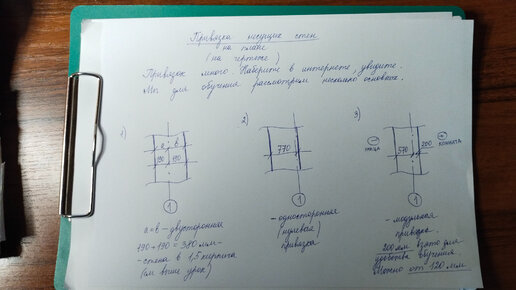 Привязка несущих стен
на плане
(на чертеже)
Привязок много. Наберите в интернете, увидите.
Мы для обучения рассмотрим несколько основных.
1)
а в
190 190
1
а=в – двусторонняя
190+190 = 380 мм –
– стена в 1,5 кирпича
(см выше урок)
2)
770
1
– односторонняя
(нулевая)
привязка
3)
–
улица
570
200
+
комната
1
– модульная
привязка.
200 мм взято для
удобства обучения.
Можно от 120 мм